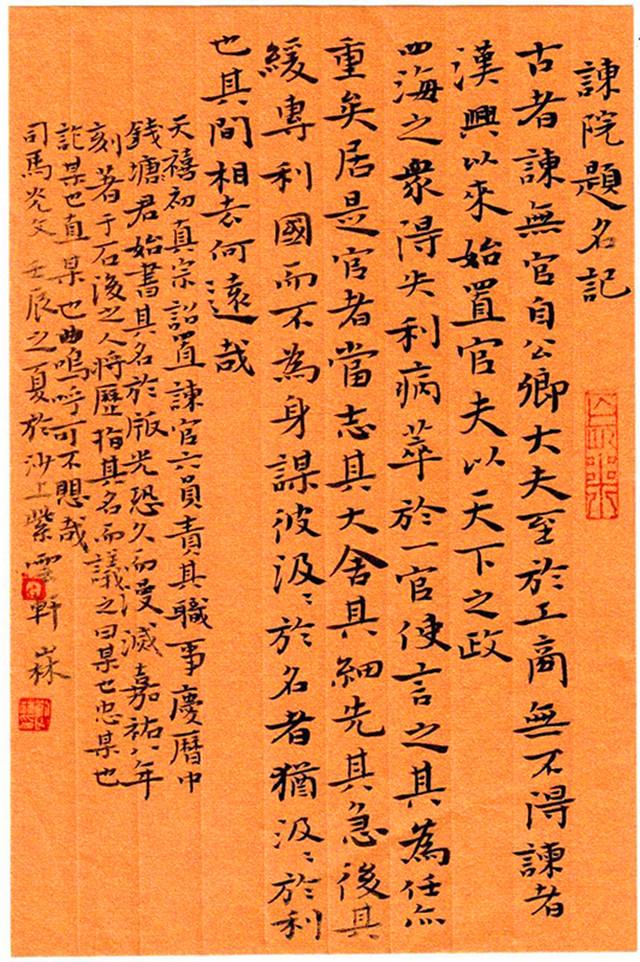 諫院題名記
古者諫無官自公卿大夫至於工商無不得諫者
漢興以來始置官夫以天下之政
四海之衆得失利病萃於一官使言之其為任亦
重矣居是官者當志其大舍其細先其急後其
緩專利國而不為身謀彼汲〻於名者猶汲〻於利
也其間相去何遠哉
天禧初真宗詔置諫官六員責其職事慶曆中
錢塘君始書其名於版光恐久而漫滅嘉祐八年
刻著于石後之人將歷指其名而議之曰某也忠某也
詐某也直某也曲嗚呼可不愳哉
司馬光文 壬辰之夏於沙上紫雲軒